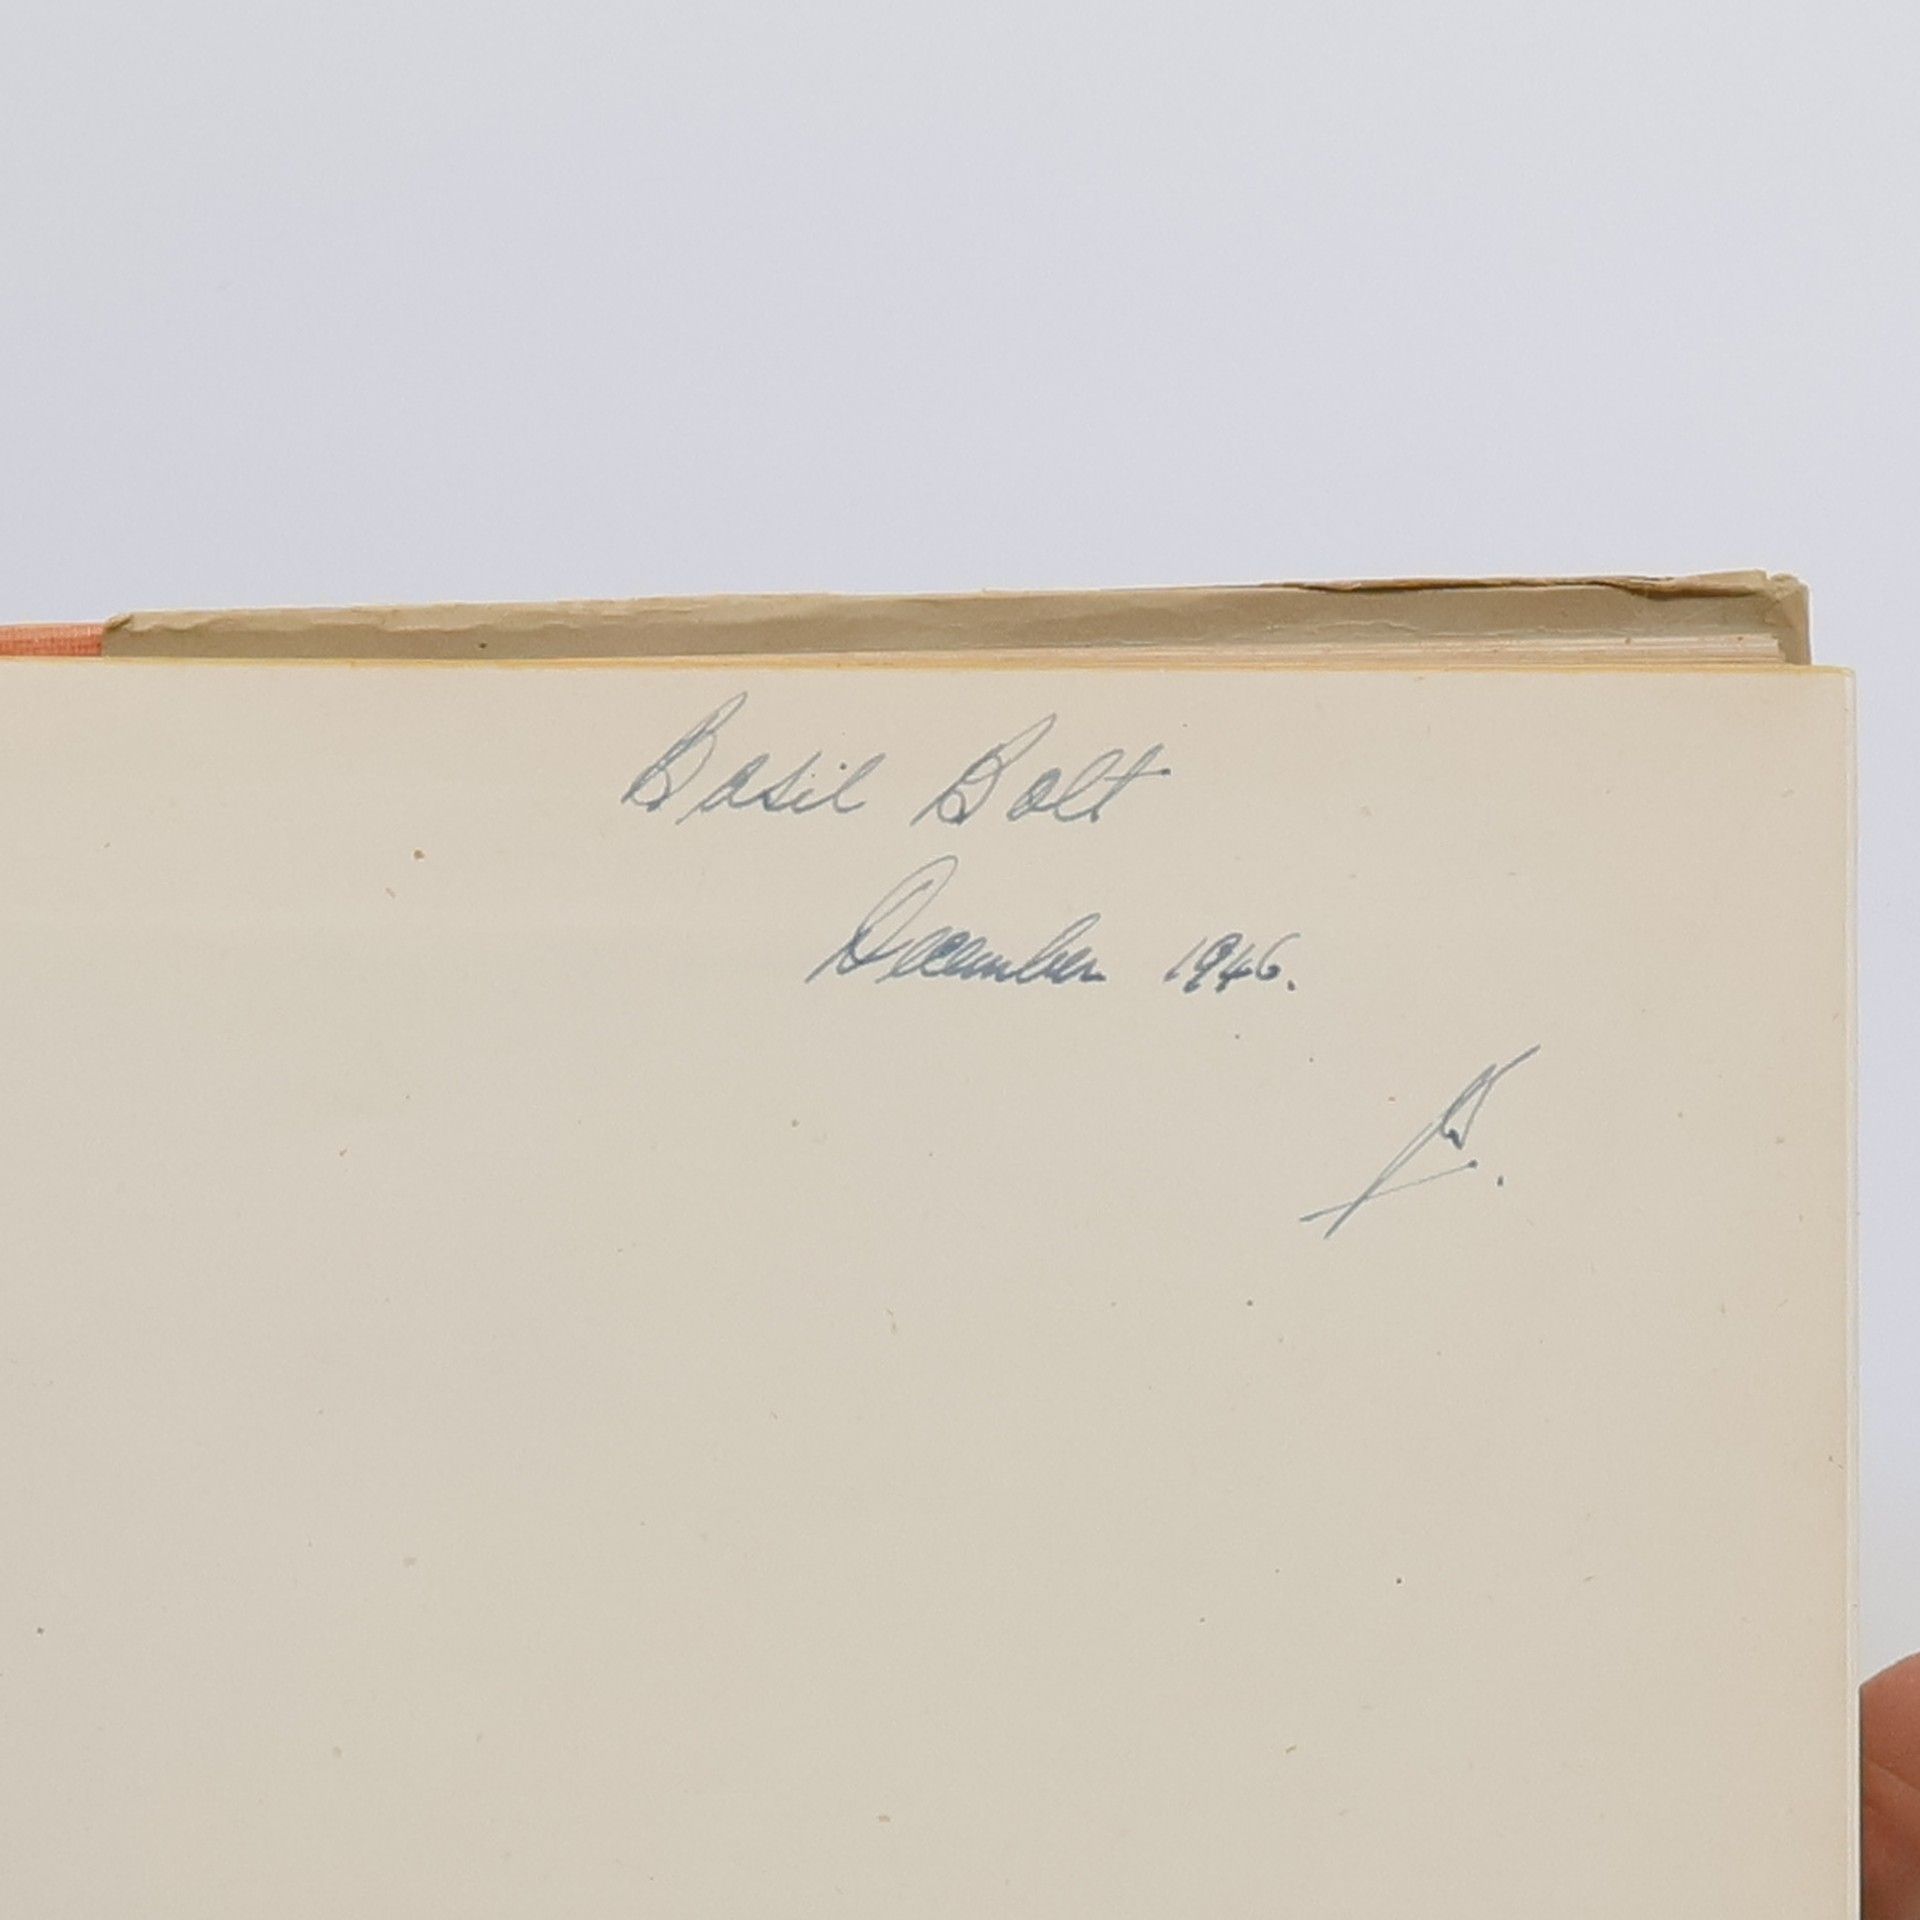 Basil Bolt
December 1946.